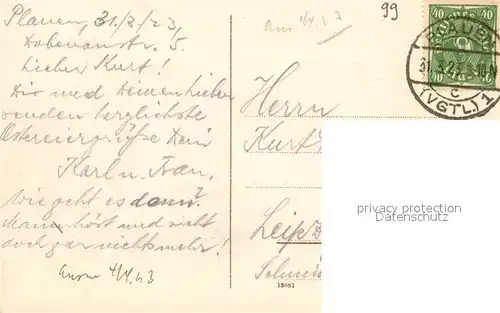 Plauen, 31/3/23,
Dobenaustr. 5.
Lieber Kurt!
Dir und Deinen Lieben
senden herzlichste
Ostereiergrüße Dein
Karl u. Frau.
Wie geht es denn?
Man hört und sieht
doch gar nichts mehr!
4/4.23
99
4/4 23
40 40
40 40
PLAUEN
31.3.23
c
(VGTL.) 1
Herrn
Kurt
privacy protection
Datenschutz
Leipz
13081